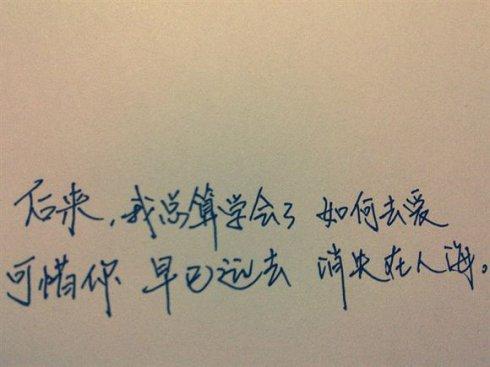 后来,我总算学会了 如何去爱
可惜你 早已远去 消失在人海。